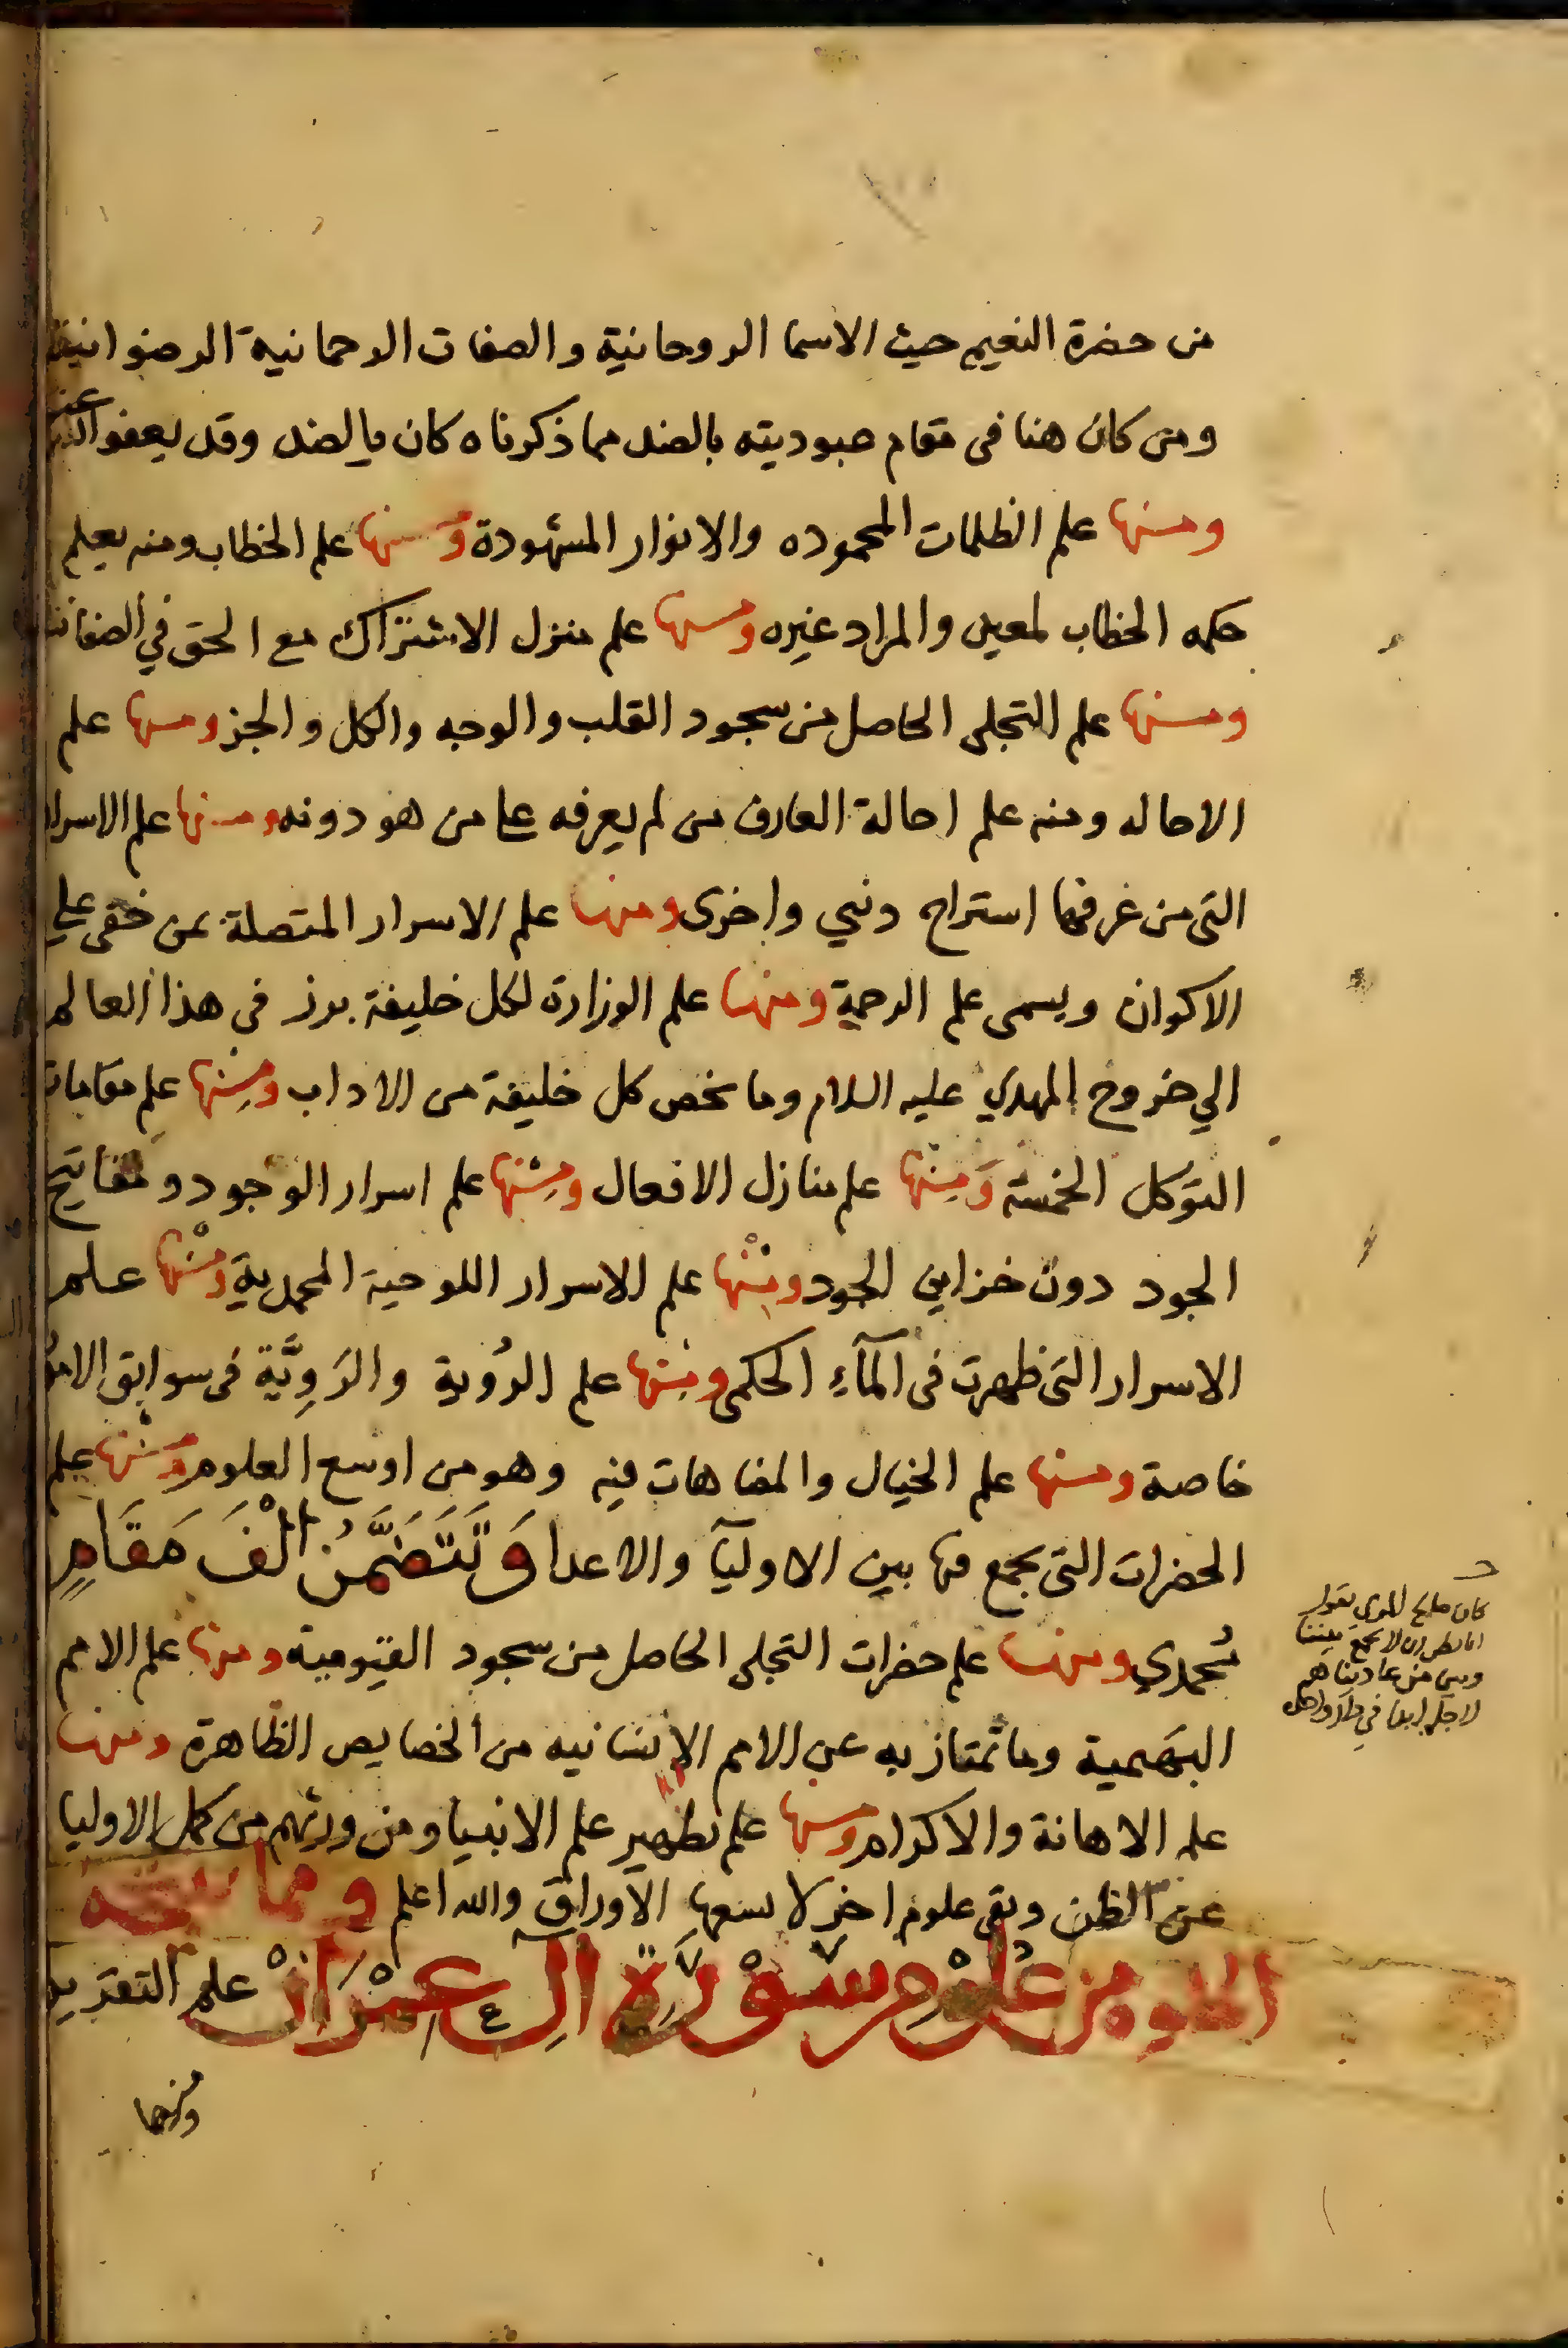 من حضرة النعيم حيث الاسما الروحانية والصفات الرحمانية الرضوانية
ومن كان هنا فى مقام عبوديته بالضد مما ذكرناه كان بالضد وقد يعفوا الله عنه
ومنها علم الظلمات المحموده والانوار المشهودة ومنها علم الخطاب ومنه يعلم
حكمه الخطاب لمعين والمراد غيره ومنها علم منزل الاشتراك مع الحق في الصفات
ومنها علم التجلى الحاصل من سجود القلب والوجه والكل والجز ومنها علم
الاحاله ومنه علم احالة العارف من لم يعرفه على من هو دونه ومنها علم الاسرار
التى من عرفها استراح دنيي واخرى ومنها علم الاسرار المتصلة بمن خفى على
الاكوان ويسمى علم الرحمة ومنها علم الوزارة لكل خليفة برز فى هذا العالم
الي خروج المهدي عليه السلام وما يخص كل خليفة من الاداب ومنها علم مقامات
التوكل الخمسة ومنها علم منازل الافعال ومنها علم اسرار الوجود ومفاتيح
الجود دون خزاين الجود ومنها علم الاسرار اللوحية المحمدية ومنها علم
الاسرار التى ظهرت فى المآء الحكمى ومنها علم الرُوية والرَوِيَّة فى سوابق الامور
خاصة ومنها علم الخيال والمضاهات فيه وهو من اوسع العلوم ومنها علم
الحضرات التى يجمع فيها بين الاوليآ والاعدا وَتَتَضَمَّنُ الْفَ مَقَامٍ
مُحمدي ومنها علم حضرات التجلى الحاصل من سجود القيومية ومنها علم الامم
البهيمية وما تمتاز به عن الامم الانسانيه من الخصايص الظاهرة ومنها
علم الاهانة والاكرام ومنها علم تطهير علم الانبيا ومن ورثهم من كمل الاوليا
عن الظن وبقى علوم اخر لا تسعها الاوراق والله اعلم ومما
من علوم سورة ال عمران علم التقديس
كان
يجمع بيننا
وبين من عادينا هم
ومنها